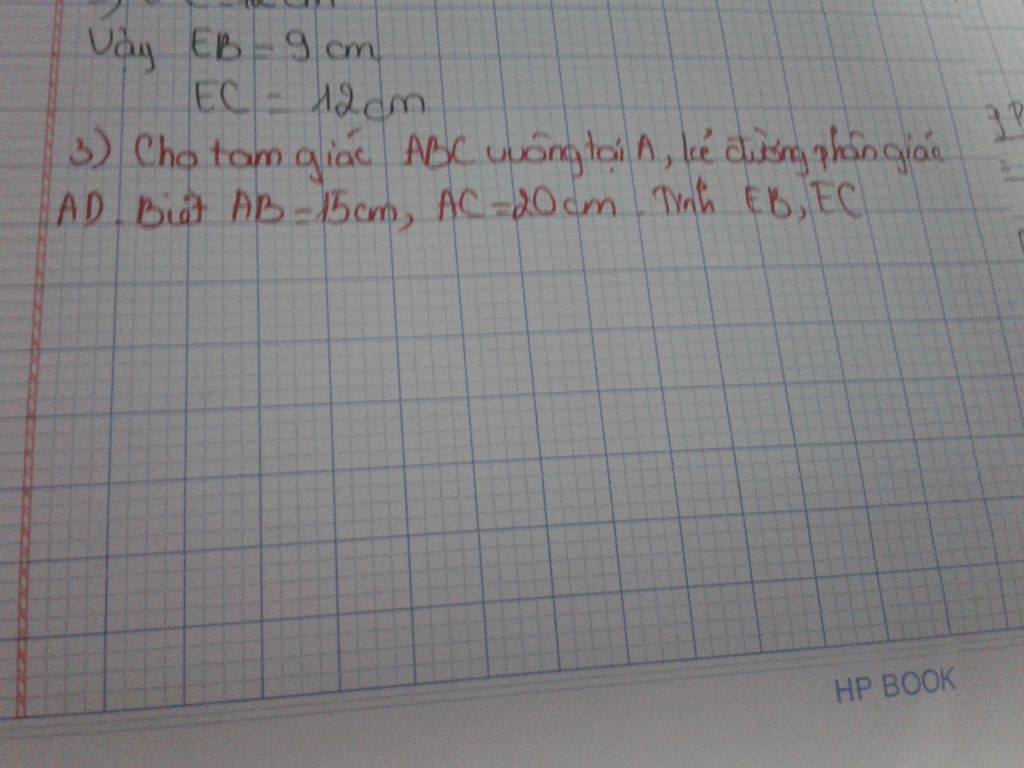 Vậy EB = 9 cm
EC = 12 cm
3) Cho tam giác ABC vuông tại A, kẻ đường phân giác
AD. Biết AB = 15cm, AC = 20cm. Tính EB, EC
HP BOOK